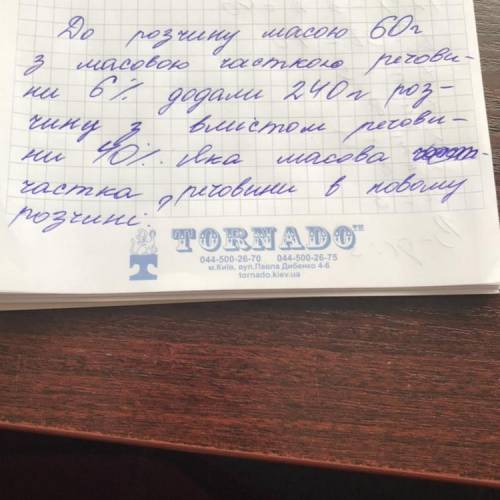 До розчину масою 60г
з масовою часткою речови-
ни 6% додали 240г роз-
чину з вмістом речови-
ни 40%. Яка масова
частка речовини в новому
розчині?
TORNADO™
044-500-26-70 044-500-26-75
м.Київ, вул.Павла Дибенко 4-6
tornado.kiev.ua